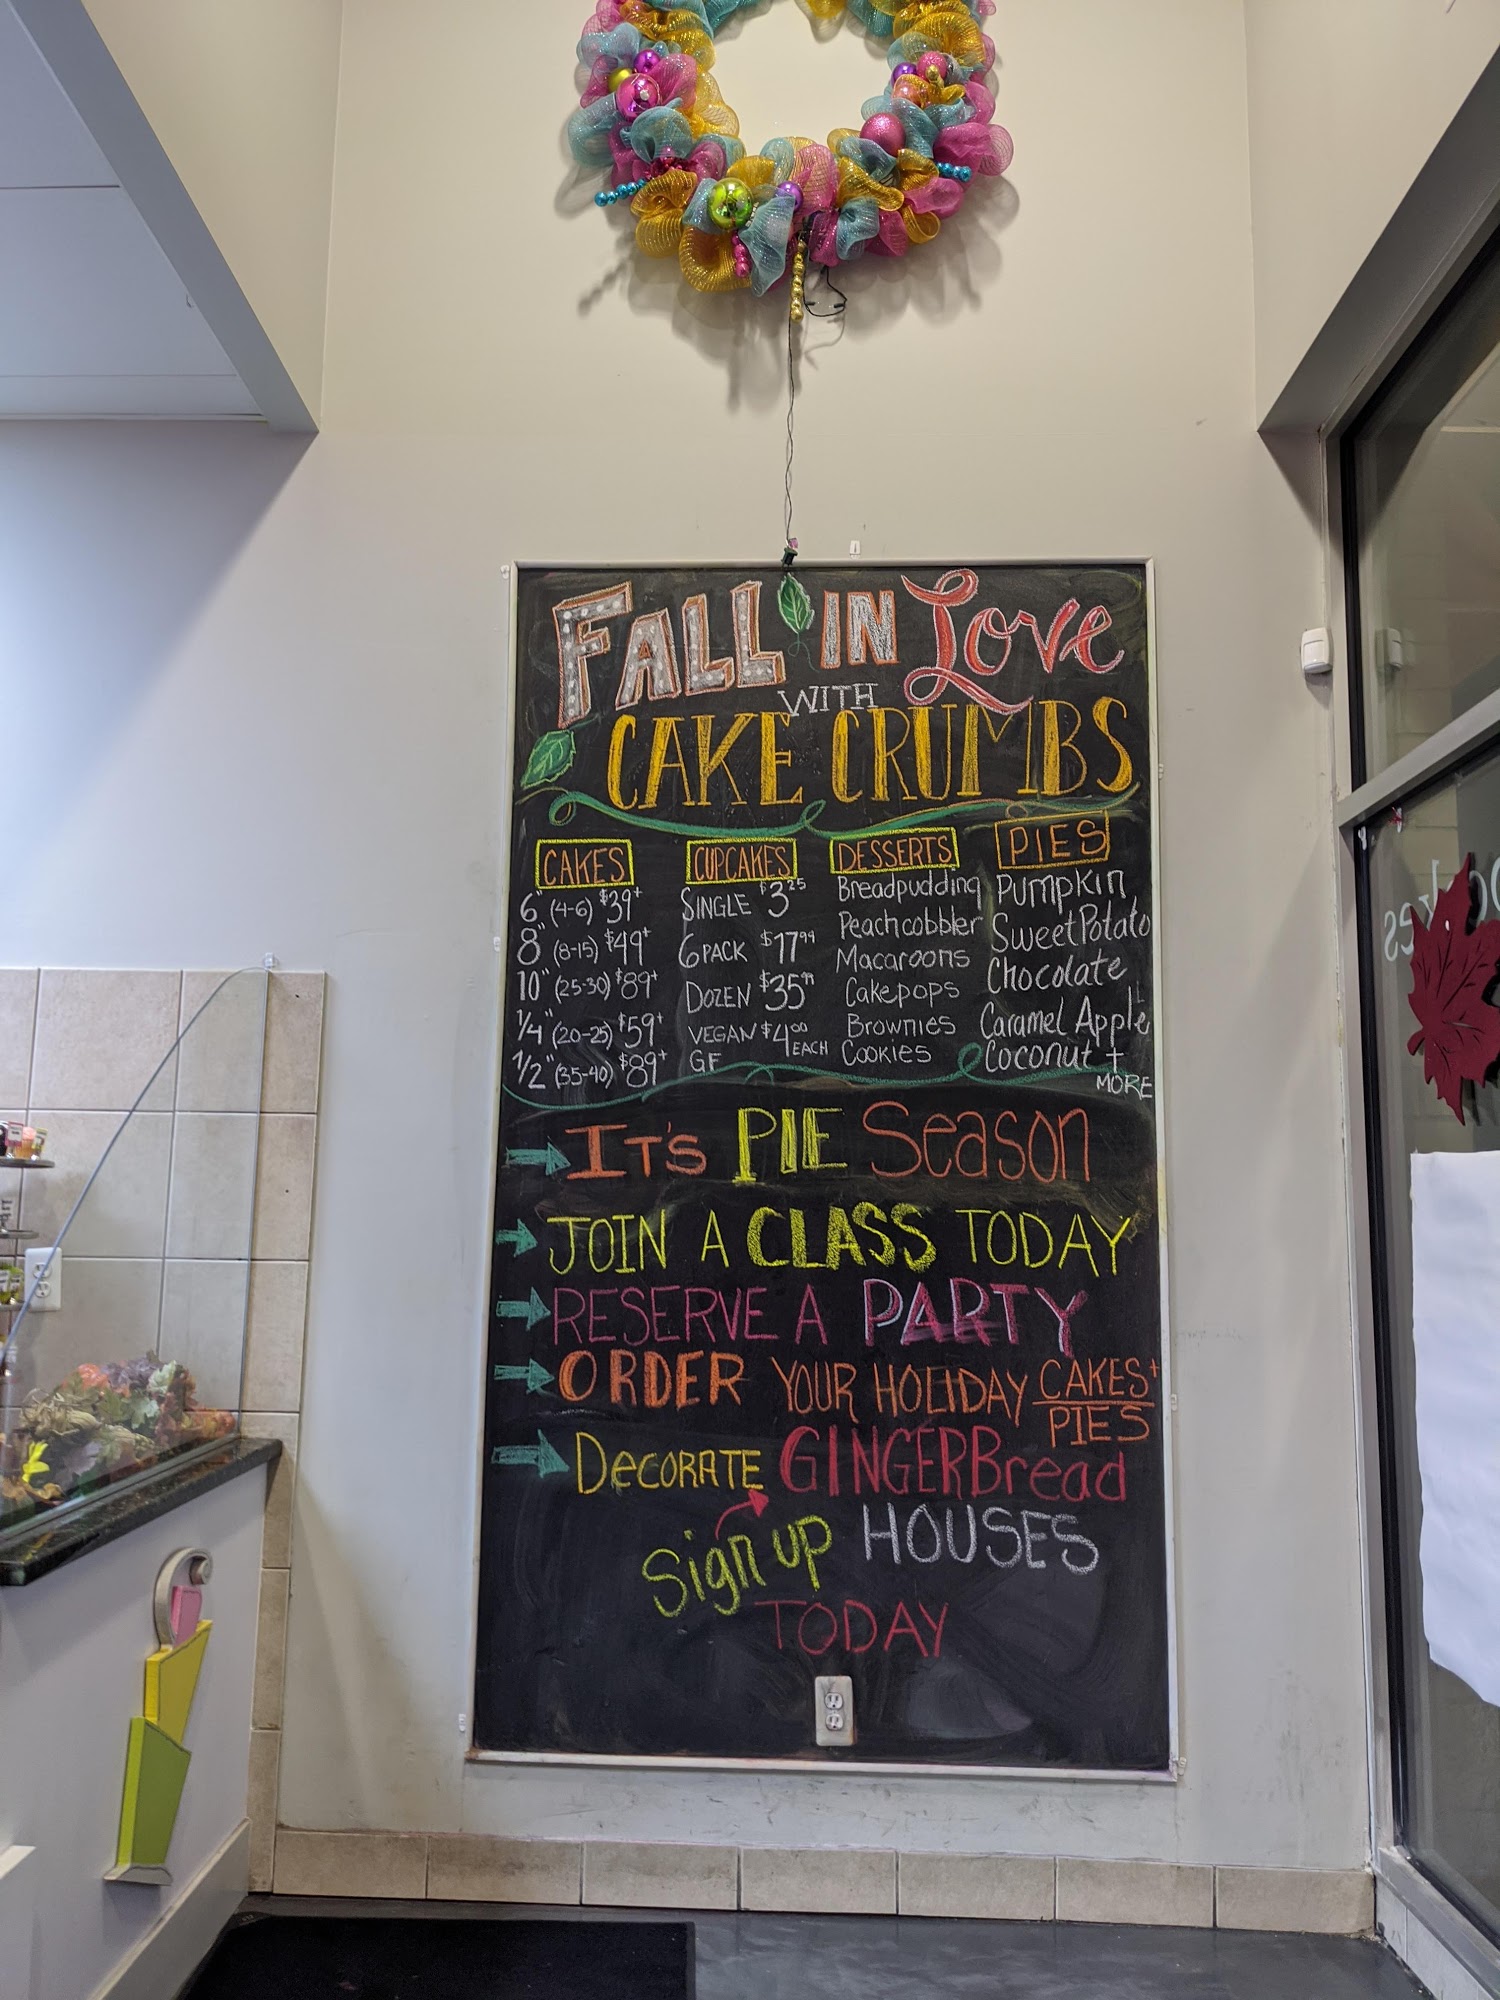 FALL IN Love
WITH
CAKE CRUMBS
CAKES
6" (4-6) $39+
8" (8-15) $49+
10" (25-30) $89+
1/4" (20-25) $59+
1/2" (35-40) $89+
CUPCAKES
SINGLE $3.25
6 PACK $17.99
DOZEN $35.99
VEGAN $4.00 EACH
GF
DESSERTS
Breadpudding
Peachcobbler
Macaroons
Cakepops
Brownies
Cookies
PIES
Pumpkin
Sweet Potato
Chocolate
Caramel Apple
Coconut +
MORE
IT'S PIE Season
JOIN A CLASS TODAY
RESERVE A PARTY
ORDER YOUR HOLIDAY CAKES+
PIES
Decorate GINGERBread
HOUSES
Sign up
TODAY